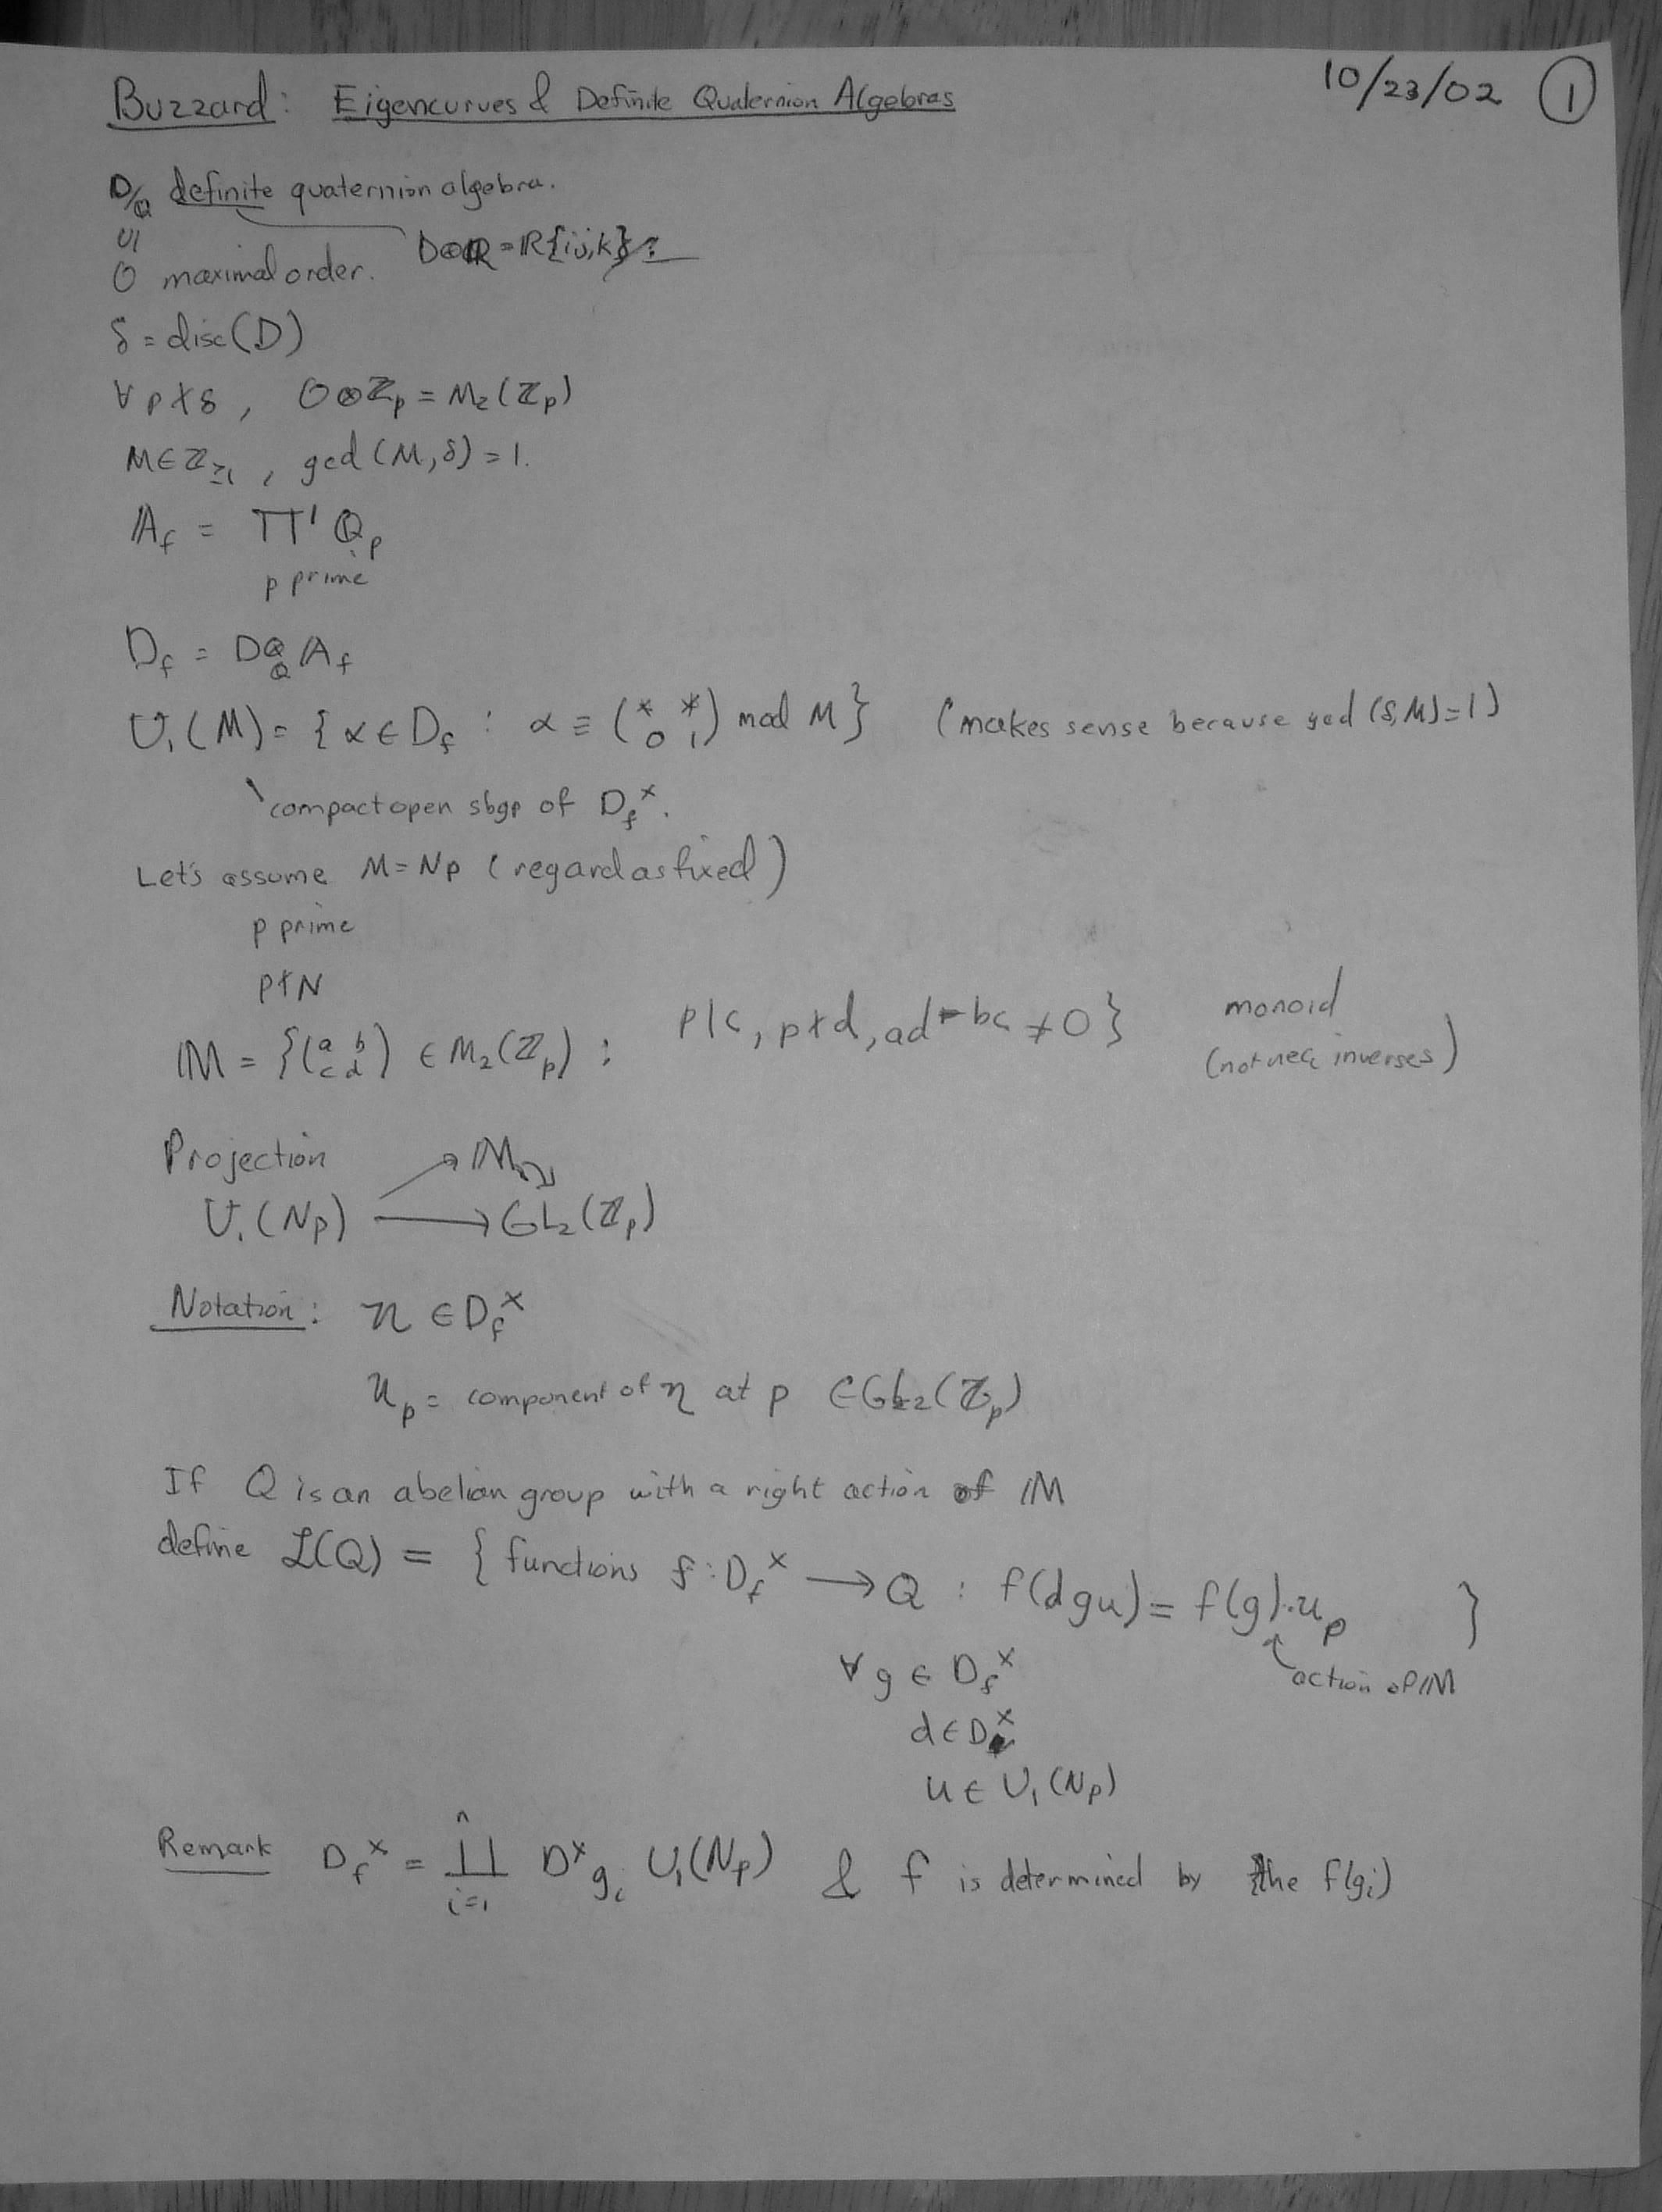 Buzzard: Eigencurves & Definite Quaternion Algebras 10/23/02 ①
D/ℚ definite quaternion algebra.
∪| D⊗ℝ = ℝ{i,j,k}
O maximal order.
δ = disc(D)
∀ p∤δ, O⊗ℤ_p = M_2(ℤ_p)
M∈ℤ_≥1, gcd(M,δ)=1.
𝔸_f = ∏' ℚ_p
p prime
D_f = D⊗_ℚ 𝔸_f
U_1(M) = {α∈D_f : α ≡ (* * / 0 1) mod M} (makes sense because gcd(δ,M)=1)
compact open sbgp of D_f^×.
Let's assume M=Np (regard as fixed)
p prime
p∤N
𝕄 = {(a b / c d) ∈ M_2(ℤ_p) : p|c, p∤d, ad-bc ≠ 0} monoid
(not nec. inverses)
Projection → 𝕄
U_1(Np) → GL_2(ℤ_p)
Notation: η ∈ D_f^×
η_p = component of η at p ∈ GL_2(ℤ_p)
If Q is an abelian group with a right action of 𝕄
define ℒ(Q) = { functions f: D_f^× → Q : f(dgu) = f(g)·u_p }
∀ g ∈ D_f^× action of 𝕄
d ∈ D^×
u ∈ U_1(Np)
Remark D_f^× = ∐_{i=1}^n D^× g_i U_1(Np) & f is determined by the f(g_i)